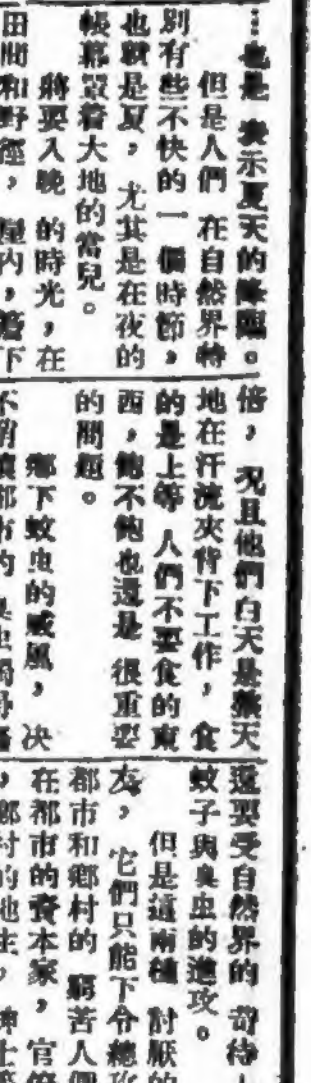 …也是 表示夏天的降臨。
但是人們 在自然界特
別有些不快的一個時節，
也就是夏，尤其是在夜的
帳幕罩着大地的當兒。
將要入晚 的時光，在
田間和野徑，屋內，簷下
倍， 况且他們白天是整天
地在汗流夾背下工作，食
的是上等 人們不要食的東
西，飽不飽也還是 很重要
的問題。
鄉下蚊虫的威風，决
不稍讓都市的 臭虫
還要受自然界的 苛待
蚊子與臭虫的進攻。
但是這兩種 討厭的
友， 它們只能下令總攻
都市和鄉村的 窮苦人們
在都市的資本家，官僚
，鄉村的地主，紳士等